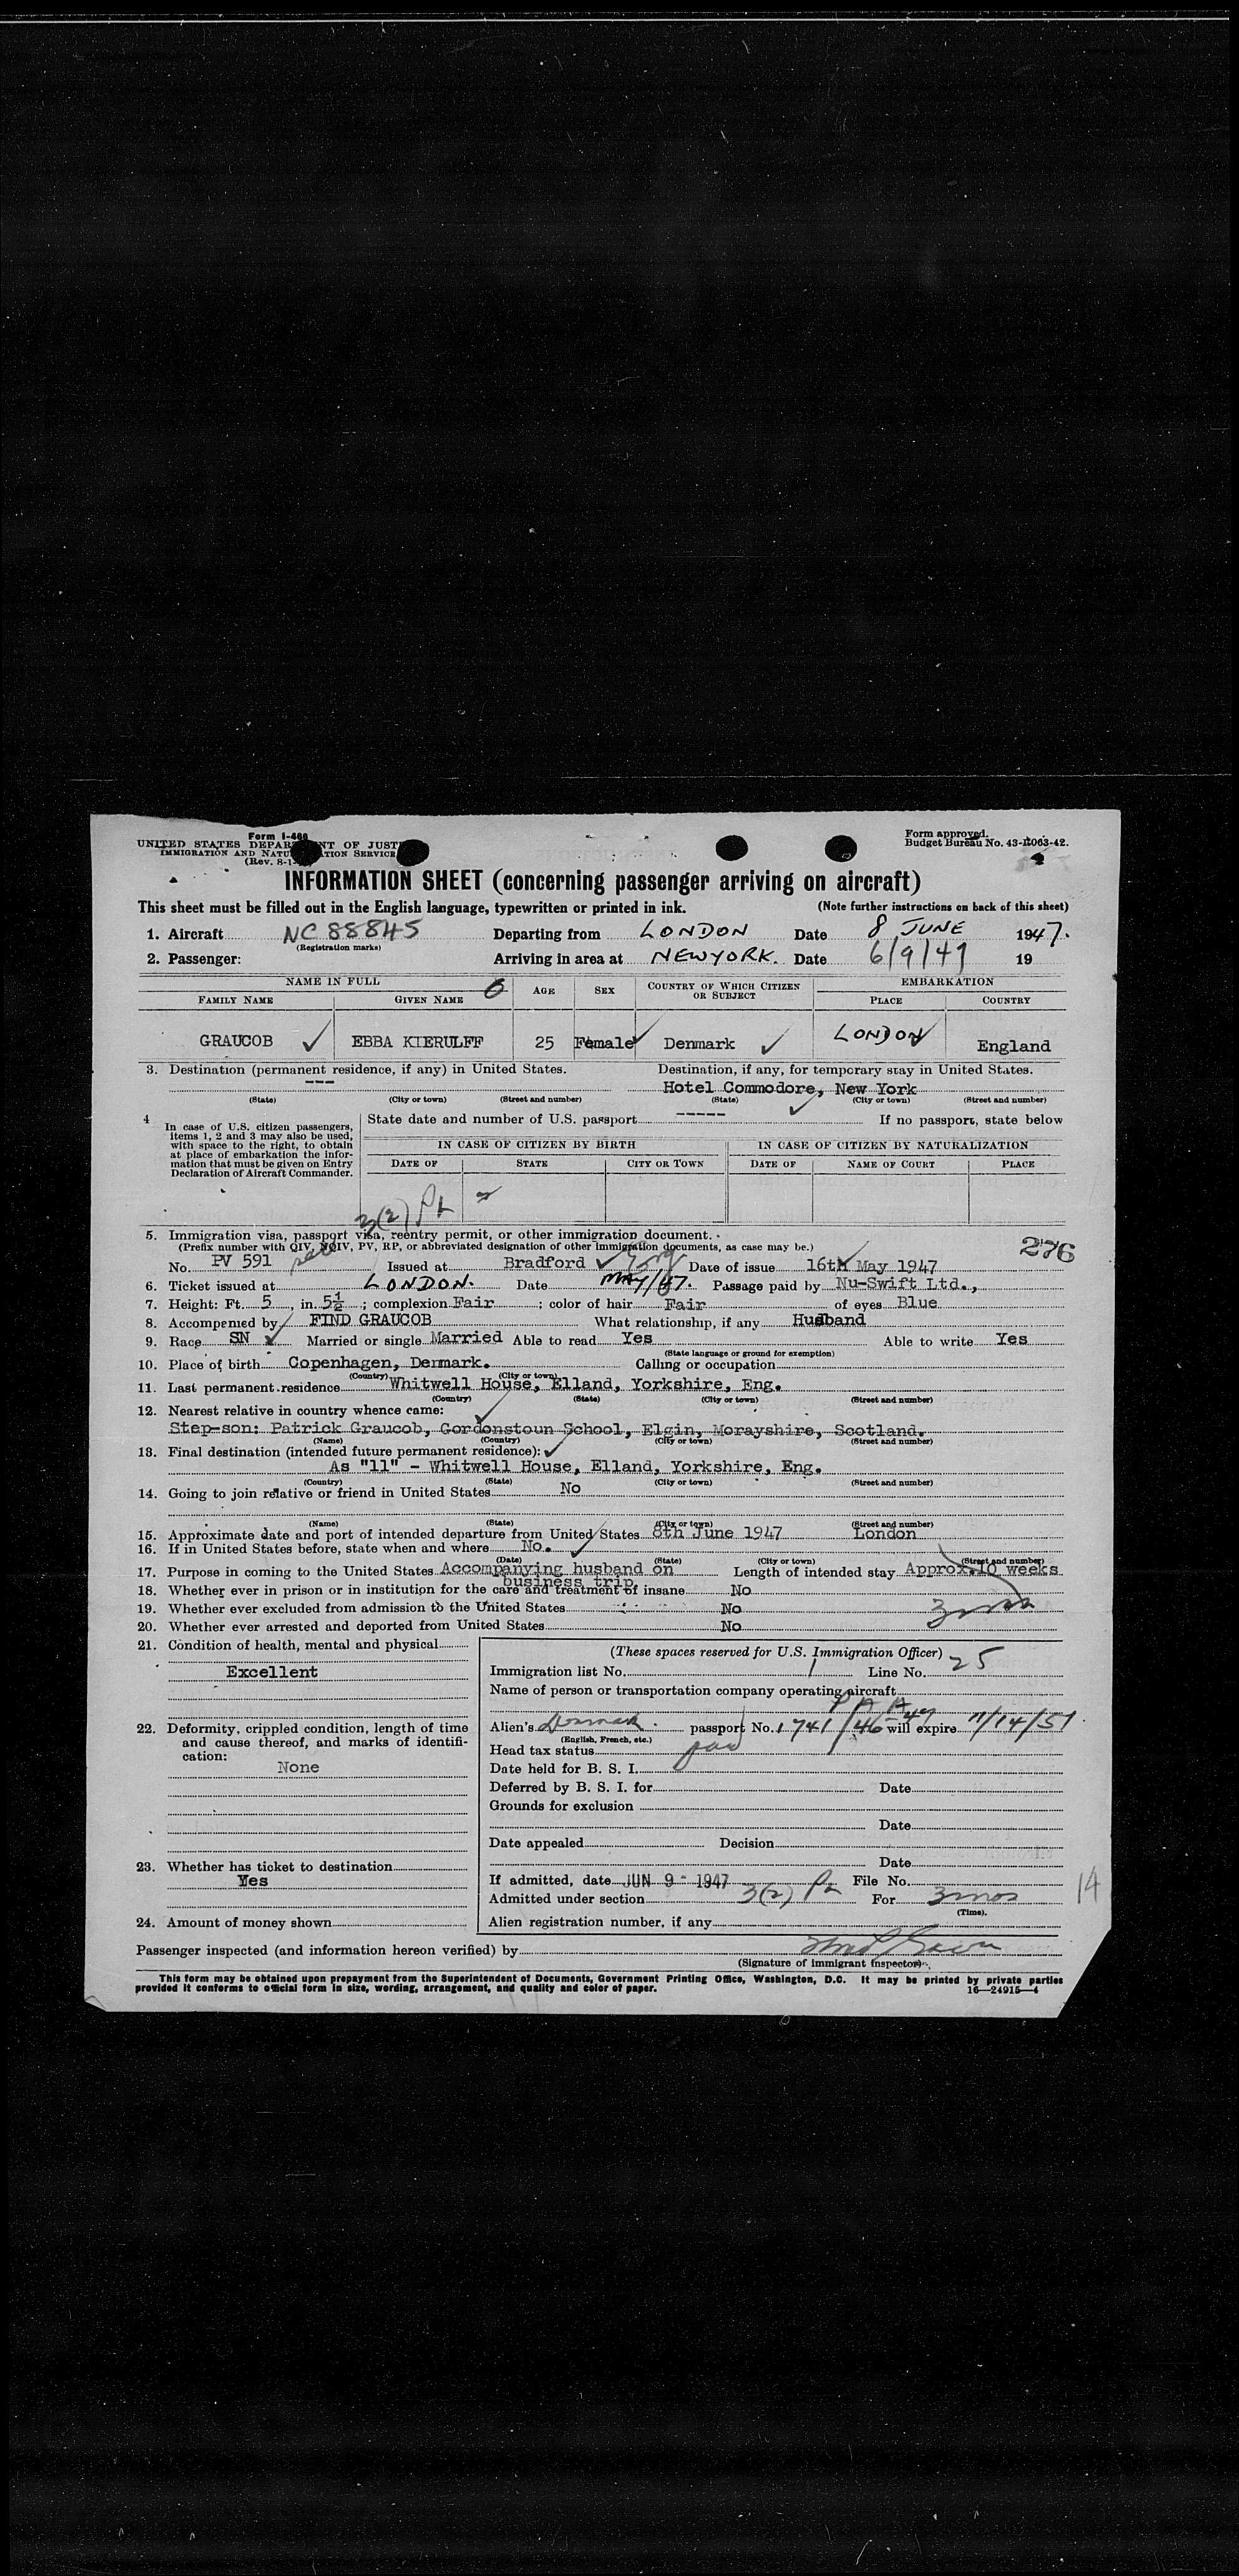 Form I-466
UNITED STATES DEPARTMENT OF JUSTICE
IMMIGRATION AND NATURALIZATION SERVICE
(Rev. 8-1-
Form approved.
Budget Bureau No. 43-R063-42.
INFORMATION SHEET (concerning passenger arriving on aircraft)
This sheet must be filled out in the English language, typewritten or printed in ink. (Note further instructions on back of this sheet)
1. Aircraft NC 88845 Departing from LONDON Date 8 JUNE 1947.
(Registration marks)
2. Passenger: Arriving in area at NEW YORK. Date 6/9/47 19
NAME IN FULL AGE SEX COUNTRY OF WHICH CITIZEN OR SUBJECT EMBARKATION
FAMILY NAME GIVEN NAME PLACE COUNTRY
GRAUCOB EBBA KIERULFF 25 Female Denmark LONDON England
3. Destination (permanent residence, if any) in United States. Destination, if any, for temporary stay in United States.
--- Hotel Commodore, New York
(State) (City or town) (Street and number) (State) (City or town) (Street and number)
4 In case of U.S. citizen passengers, items 1, 2 and 3 may also be used, with space to the right, to obtain at place of embarkation the information that must be given on Entry Declaration of Aircraft Commander.
State date and number of U.S. passport ----- If no passport, state below
IN CASE OF CITIZEN BY BIRTH IN CASE OF CITIZEN BY NATURALIZATION
DATE OF STATE CITY OR TOWN DATE OF NAME OF COURT PLACE
3(2) PL
5. Immigration visa, passport visa, reentry permit, or other immigration document.
(Prefix number with QIV, NQIV, PV, RP, or abbreviated designation of other immigration documents, as case may be.) 276
No. PV 591 Issued at Bradford Eng Date of issue 16th May 1947
6. Ticket issued at LONDON. Date MAY/47. Passage paid by Nu-Swift Ltd.,
7. Height: Ft. 5, in. 5½; complexion Fair; color of hair Fair of eyes Blue
8. Accompanied by FIND GRAUCOB What relationship, if any Husband
9. Race SN Married or single Married Able to read Yes Able to write Yes
(State language or ground for exemption)
10. Place of birth Copenhagen, Denmark. Calling or occupation
(Country) (City or town)
11. Last permanent residence Whitwell House, Elland, Yorkshire, Eng.
(Country) (State) (City or town) (Street and number)
12. Nearest relative in country whence came:
Step-son: Patrick Graucob, Gordonstoun School, Elgin, Morayshire, Scotland.
(Name) (Country) (City or town) (Street and number)
13. Final destination (intended future permanent residence):
As "11" - Whitwell House, Elland, Yorkshire, Eng.
(Country) (State) (City or town) (Street and number)
14. Going to join relative or friend in United States No
(Name) (State) (City or town) (Street and number)
15. Approximate date and port of intended departure from United States 8th June 1947 London
16. If in United States before, state when and where No.
(Date) (State) (City or town) (Street and number)
17. Purpose in coming to the United States Accompanying husband on business trip Length of intended stay Approx. 10 weeks
18. Whether ever in prison or in institution for the care and treatment of insane No
19. Whether ever excluded from admission to the United States No 3 mos
20. Whether ever arrested and deported from United States No
21. Condition of health, mental and physical
Excellent
22. Deformity, crippled condition, length of time and cause thereof, and marks of identification:
None
23. Whether has ticket to destination
Yes
24. Amount of money shown
(These spaces reserved for U.S. Immigration Officer)
Immigration list No. 1 Line No. 25
Name of person or transportation company operating aircraft
P A A
Alien's Denmark passport No. 1741/46-47 will expire 11/14/51
(English, French, etc.)
Head tax status
Date held for B. S. I.
Deferred by B. S. I. for Date
Grounds for exclusion
Date
Date appealed Decision
Date
If admitted, date JUN 9 - 1947 File No.
Admitted under section 3(2) PL For 3 mos 14
(Time).
Alien registration number, if any
Passenger inspected (and information hereon verified) by
(Signature of immigrant inspector)
This form may be obtained upon prepayment from the Superintendent of Documents, Government Printing Office, Washington, D.C. It may be printed by private parties
provided it conforms to official form in size, wording, arrangement, and quality and color of paper. 16—24915—4